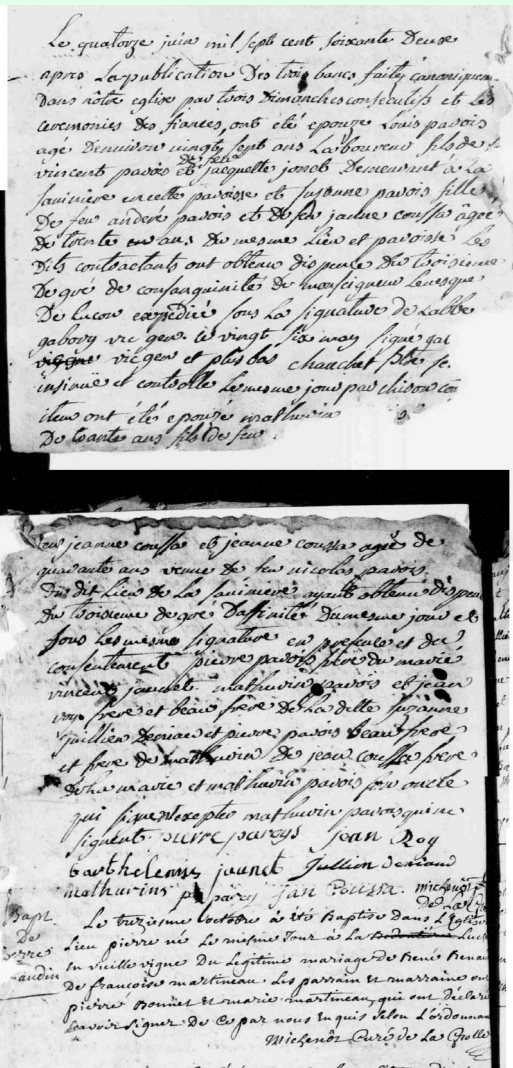 Le quatorze juin mil sept cent soixante Deuse
apres La publication Des trois bancs faites canoniquem
Dans nôtre eglise par trois Dimanches consecutifs et Les
ceremonies des fiances, ont été epouze Louis parois
age Denuiron vingt sept ans Laboureur fils de
vincent parois et de feue jacquette jonet Demeurant à La
saminiere en cette paroisse et suzanne parois fille
De feu andere parois et de feu janne coussa âgée
de trente ans du mesme Lieu et paroisse Les
Dits contractants ont obtenu dispence Du troisieme
Degré de consanguinité de monseigneur Leuesque
De Lucon expedié sous La signature de Labbe
gabory vic gen. le vingt six may signé gab
vic gen et plus bas chauchet pbre se.
insinuë et controlle Le mesme jour par chison con
item ont été epouzé mathurin
De trante ans fils de feu
feu jeanne coussa et jeanne coussa agée de
quarante ans veuve de feu nicolas parois.
Du dit Lieu de La saminiere ayant obtenu dispen
Du troisieme degré D'affinité Du mesme jour et
sous Les mesme signature en presence et du
consentement pierre parois pere du marié
vincent jaunet mathurin parois et jean
roy frere et beau frere de La ditte suzanne
jullien Deniau et pierre parois beau frere
et frere de mathurin de jean coussa frere
de La marié et mathurin parois son oncle
qui signent excepté mathurin parois qui ne
signent pierre paroys Jean Roy
barthelemy jaunet Jullien deniaud
mathurins paroy Jan Coussa. michenot
de La
Bapt
De
pierre
audin
Le treziesme octobre à été Baptisé dans L'Eglise
Lieu pierre né Le mesme Jour à La
en vieille vigne Du Legitime mariage de René Renau
De francoise martineau Les parrain et marraine on
pierre Bonnet et marie martineau, qui ont Déclaré
scavoir signer De ce par nous Enquis selon L'ordonnan
Michenôt Curé de La Grolle